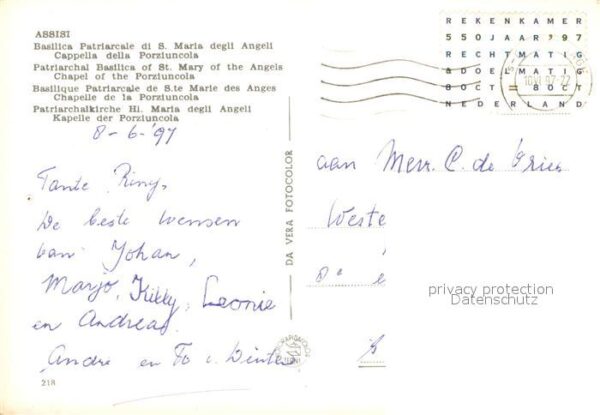 ASSISI
Basilica Patriarcale di S. Maria degli Angeli
Cappella della Porziuncola
Patriarchal Basilica of St. Mary of the Angels
Chapel of the Porziuncola
Basilique Patriarcale de S.te Marie des Anges
Chapelle de la Porziuncola
Patriarchalkirche Hl. Maria degli Angeli
Kapelle der Porziuncola
8-6-'97
Tante Riny,
De beste wensen
van Johan,
Marjo, Kitty, Leonie
en Andreas.
Andre en To v. Winter
218
DA VERA FOTOCOLOR
REKENKAMER
550JAAR'97
RECHTMATIG
&DOELMATIG
80CT=80CT
NEDERLAND
aan Mevr. C. de Vries
Weste
privacy protection
Datenschutz